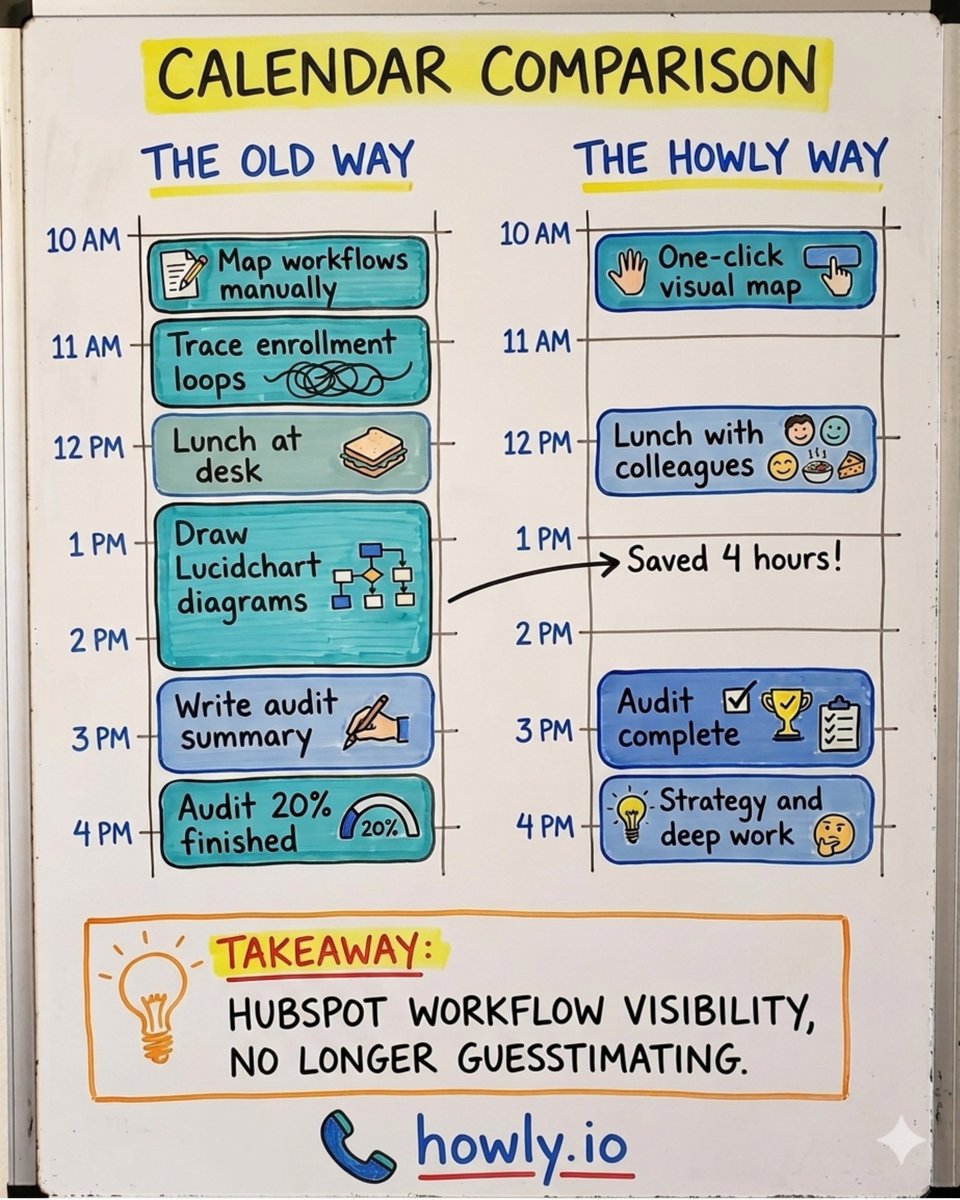 CALENDAR COMPARISON
THE OLD WAY
10 AM
Map workflows
manually
11 AM
Trace enrollment
loops
12 PM
Lunch at
desk
1 PM
Draw
Lucidchart
diagrams
2 PM
Write audit
summary
3 PM
Audit 20%
finished
20%
4 PM
THE HOWLY WAY
10 AM
One-click
visual map
11 AM
12 PM
Lunch with
colleagues
1 PM
Saved 4 hours!
2 PM
Audit
complete
3 PM
Strategy and
deep work
4 PM
TAKEAWAY:
HUBSPOT WORKFLOW VISIBILITY,
NO LONGER GUESSTIMATING.
howly.io